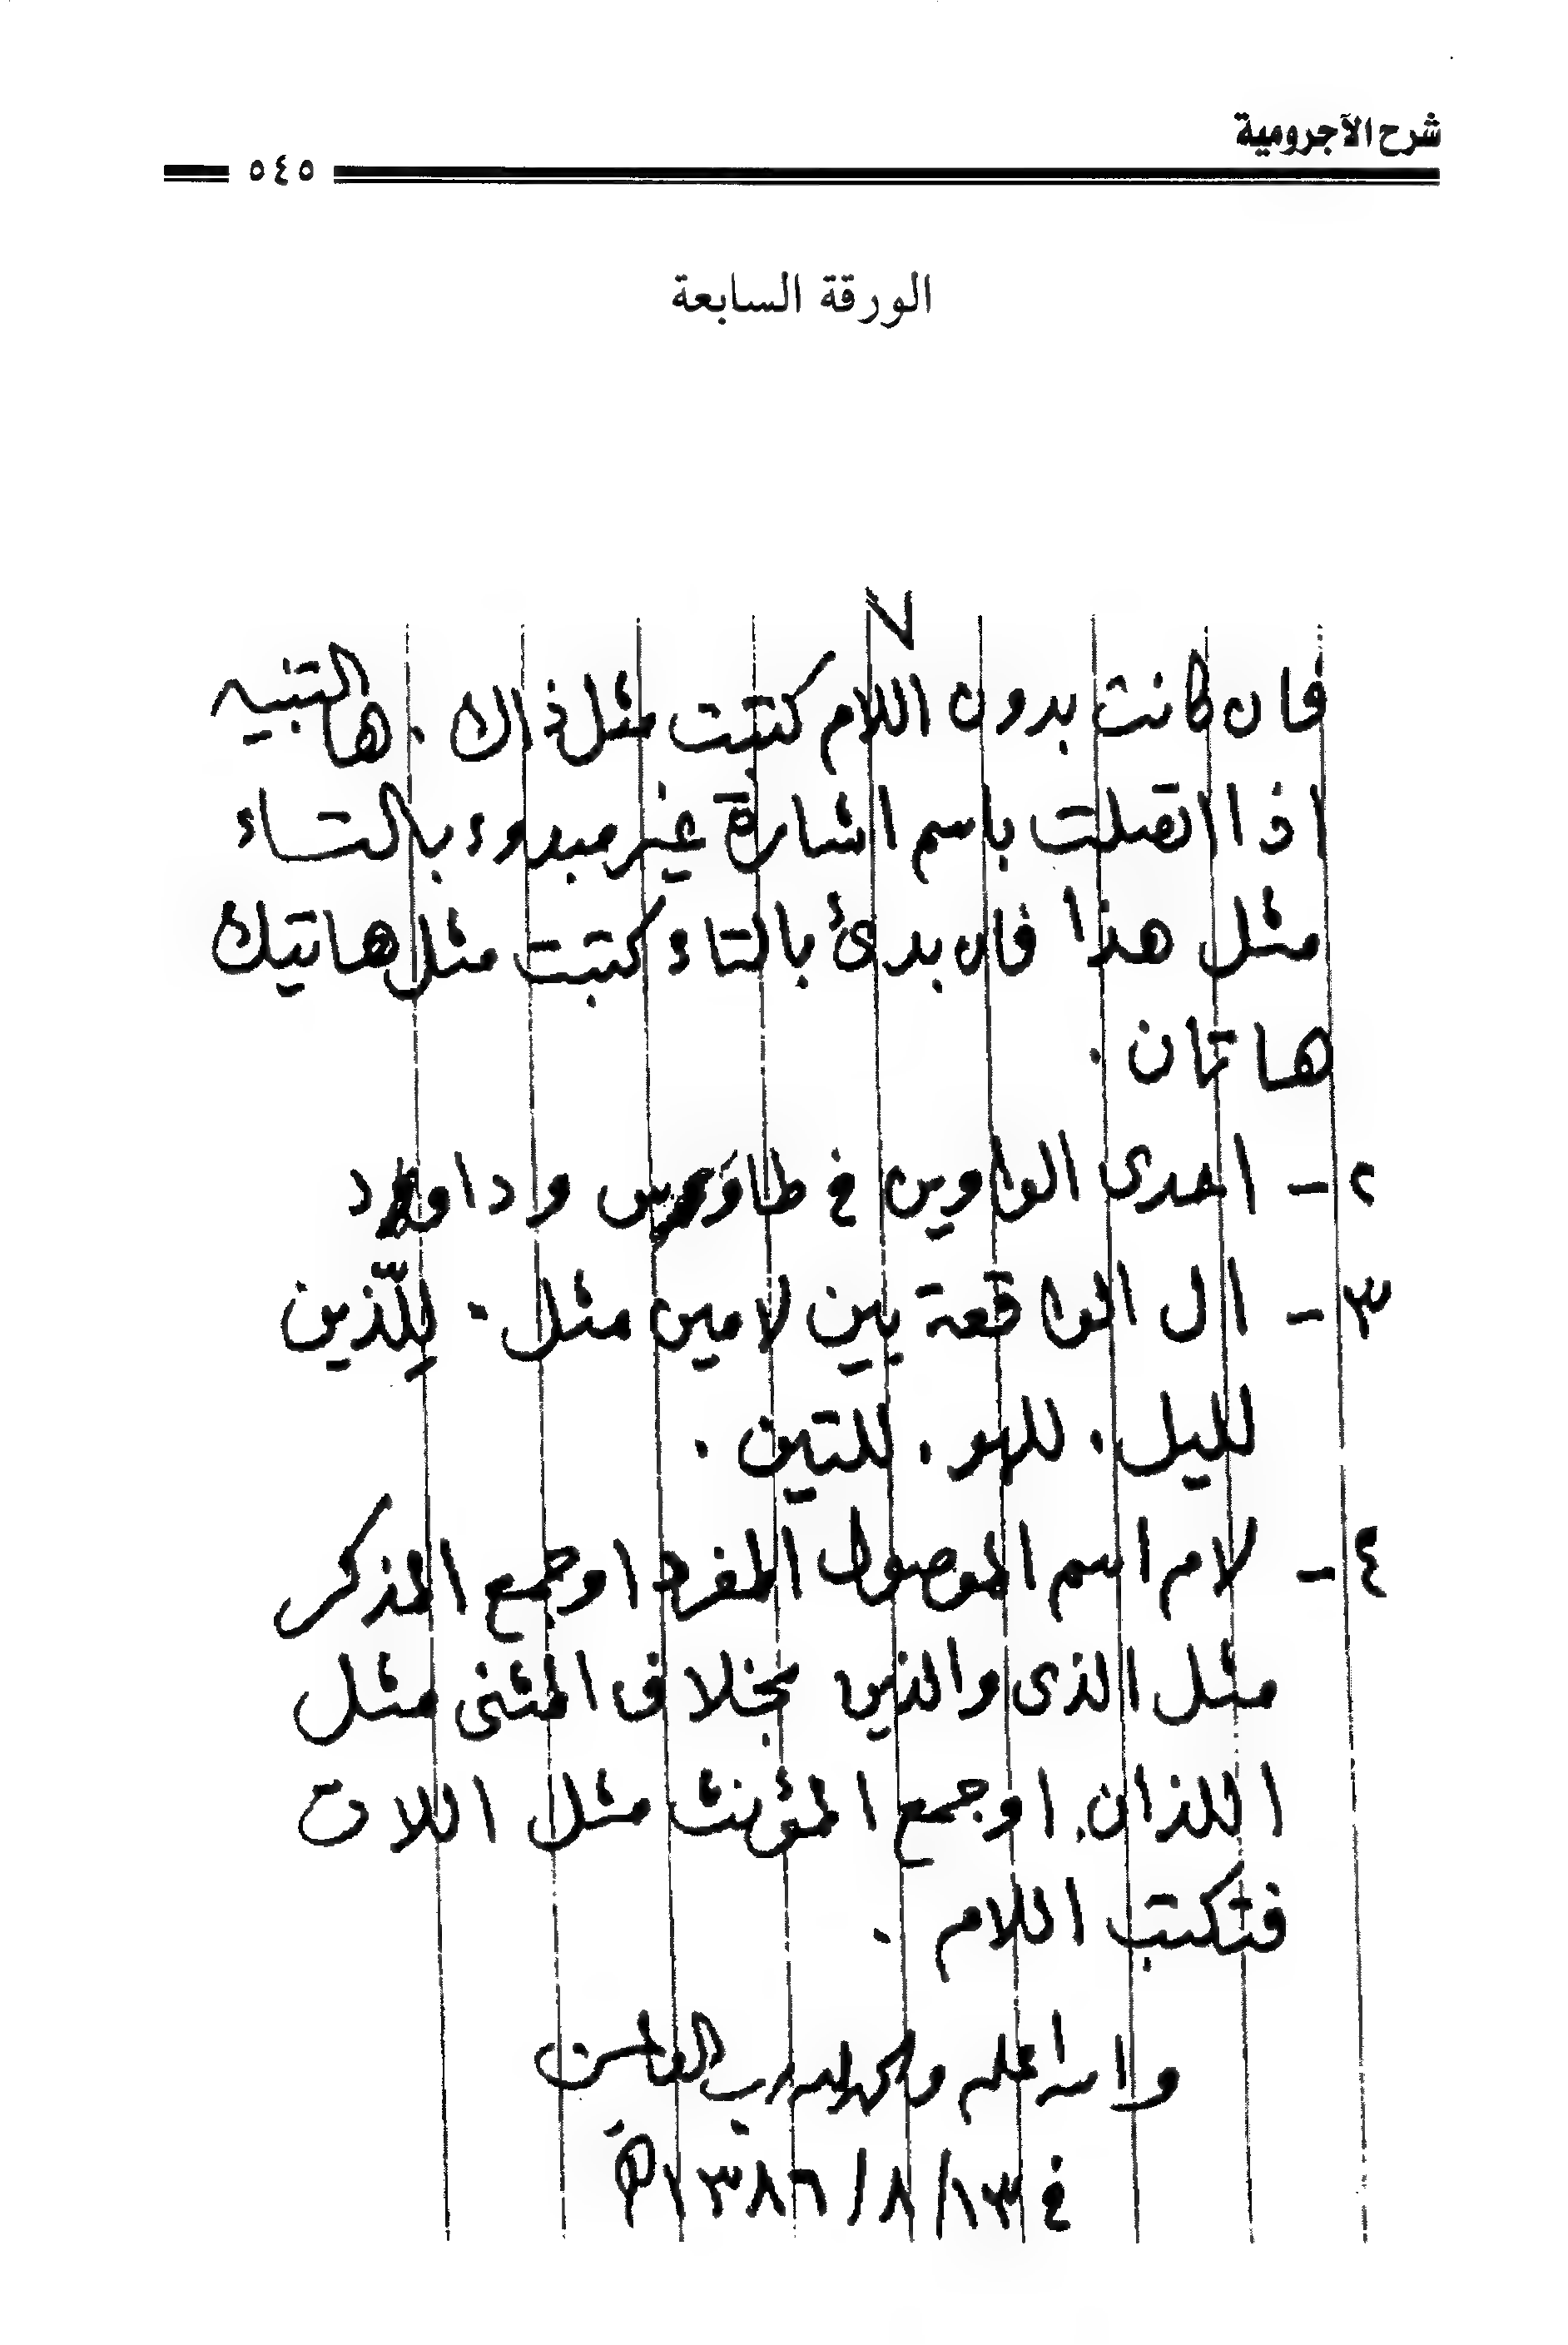 شرح الآجرومية
٥٤٥
الورقة السابعة
٧
فان كانت بدون اللام كتبت مثل ذاك . ها التنبيه
اذا اتصلت باسم اشارة غير مبدوء بالتاء
مثل هذا فان بدئ بالتاء كتبت مثل هاتيك
هاتان .
٢ - احدى الواوين في طاوس و داود
٣ - ال الواقعة بين لامين مثل . لِلّذين
لليل . للهو . للتين .
٤ - لام اسم الموصول المفرد او جمع المذكر
مثل الذى والذين بخلاف المثنى مثل
اللذان . او جمع المؤنث مثل اللات
فتكتب اللام .
والله اعلم والحمد لله رب العالمين
في ١٣/٨/١٣٨٦ ه